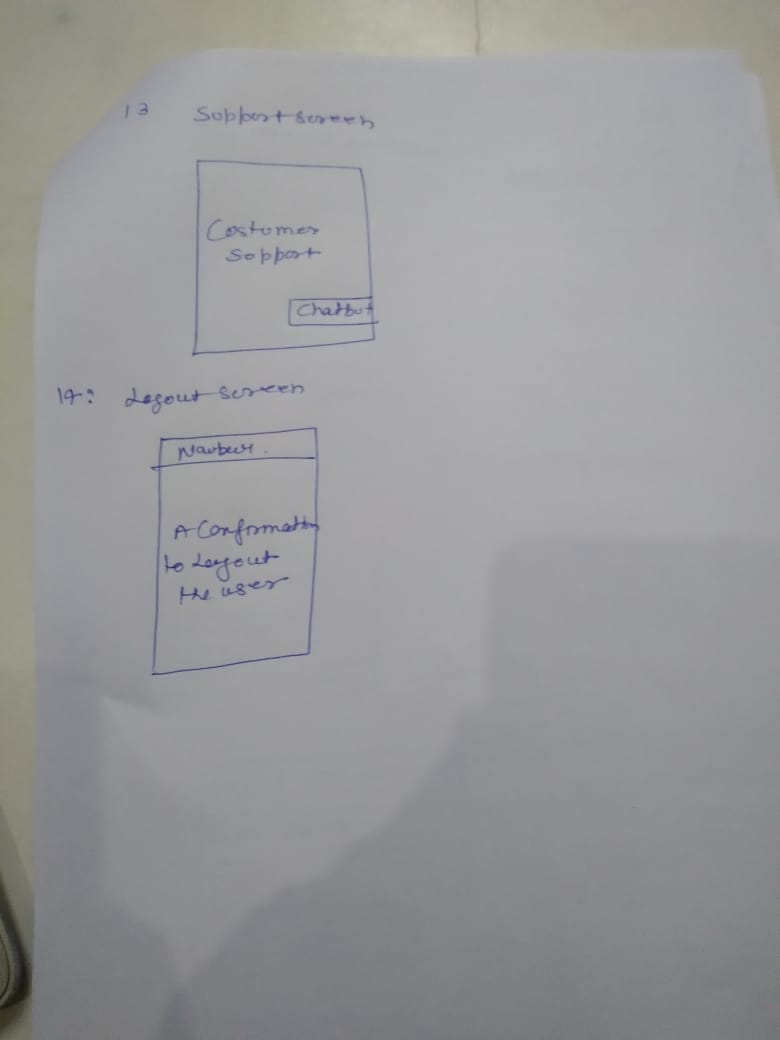 13 Support screen
Costumer
Support
Chatbot
14: Logout screen
Navbar.
A Confirmation
to Logout
the user